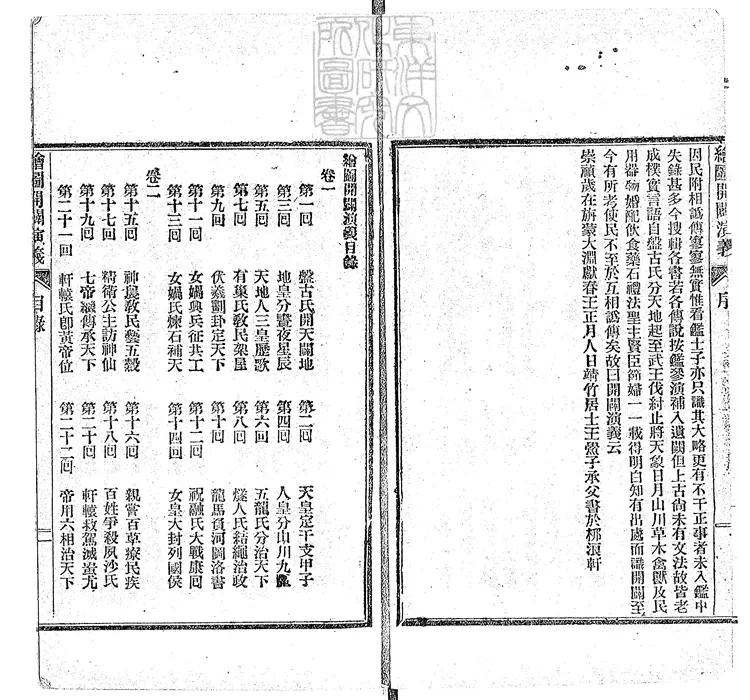 繪圖開闢演義 序
因民附相訛傳寥寥無實惟看鑑士子亦只識其大略更有不干正事者未入鑑中
失錄甚多今搜輯各書若各傳說按鑑參演補入遺闕但上古尚未有文法故皆老
成樸實言語自盤古氏分天地起至武王伐紂止將天象日月山川草木禽獸及民
用器物婚配飲食藥石禮法聖主賢臣節婦一一載得明白知有出處而識開闢至
今有所考使民不至於互相訛傳矣故曰開闢演義云
崇禎歲在旃蒙大淵獻春王正月人日靖竹居士王黌子承父書於柳浪軒
繪圖開闢演義目錄
卷一
第一回 盤古氏開天闢地 第二回 天皇定干支甲子
第三回 地皇分晝夜星辰 第四回 人皇分山川九區
第五回 天地人三皇歷歌 第六回 五龍氏分治天下
第七回 有巢氏教民架屋 第八回 燧人氏結繩治政
第九回 伏羲劃卦定天下 第十回 龍馬負河圖洛書
第十一回 女媧興兵征共工 第十二回 祝融氏大戰康回
第十三回 女媧氏煉石補天 第十四回 女皇大封列國侯
卷二
第十五回 神農教民藝五穀 第十六回 親嘗百草療民疾
第十七回 精衛公主訪神仙 第十八回 百姓爭殺夙沙氏
第十九回 七帝繼傳承天下 第二十回 軒轅救駕滅蚩尤
第二十一回 軒轅氏卽黃帝位 第二十二回 帝用六相治天下
繪圖開闢演義 目錄 一
東洋文化研究所圖書